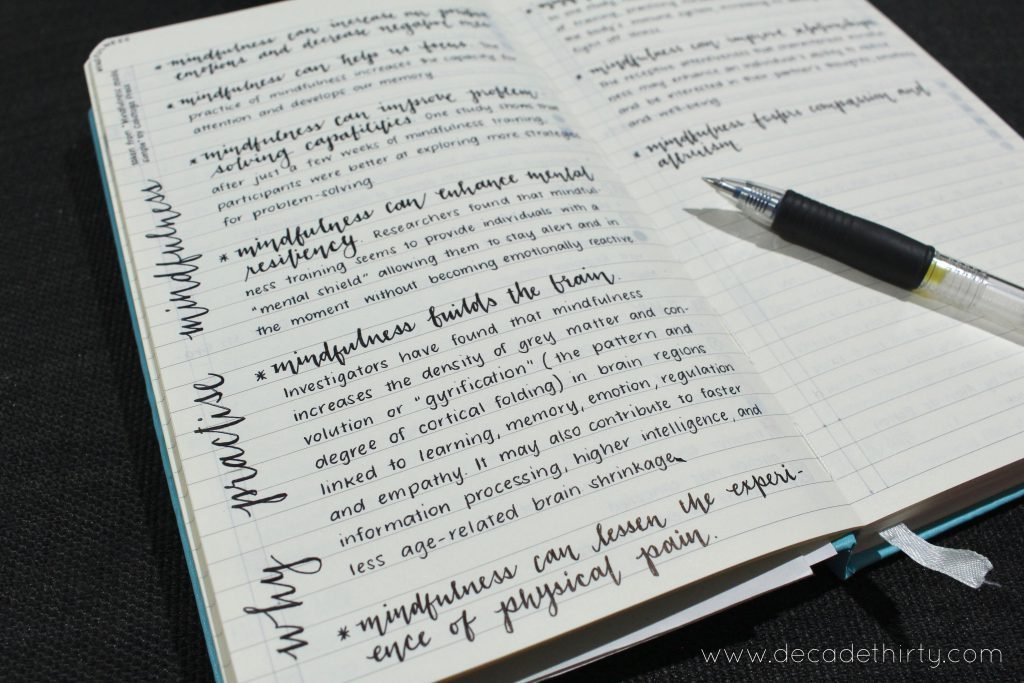 * mindfulness can increase our positive
emotions and decrease negative
* mindfulness can help us focus. The
practice of mindfulness increases the capacity for
attention and develops our memory.
* mindfulness can improve problem
solving capabilities One study shows that
after just a few weeks of mindfulness training,
participants were better at exploring more strategies
for problem-solving
* mindfulness can enhance mental
resiliency. Researchers found that mindful-
ness training seems to provide individuals with a
"mental shield" allowing them to stay alert and in
the moment without becoming emotionally reactive
* mindfulness builds the brain.
Investigators have found that mindfulness
increases the density of grey matter and con-
volution or "gyrification" (the pattern and
degree of cortical folding) in brain regions
linked to learning, memory, emotion, regulation
and empathy. It may also contribute to faster
information processing, higher intelligence, and
less age-related brain shrinkage
* mindfulness can lessen the experi-
ence of physical pain.
why practise mindfulness
taken from "Mindfulness made
simple" by Calistoga Press
fight off illness
* mindfulness can improve relationships
may enhance an individual's ability to
and be interested in their partner's thoughts,
and well-being
* mindfulness fosters compassion and
altruism
www.decadethirty.com